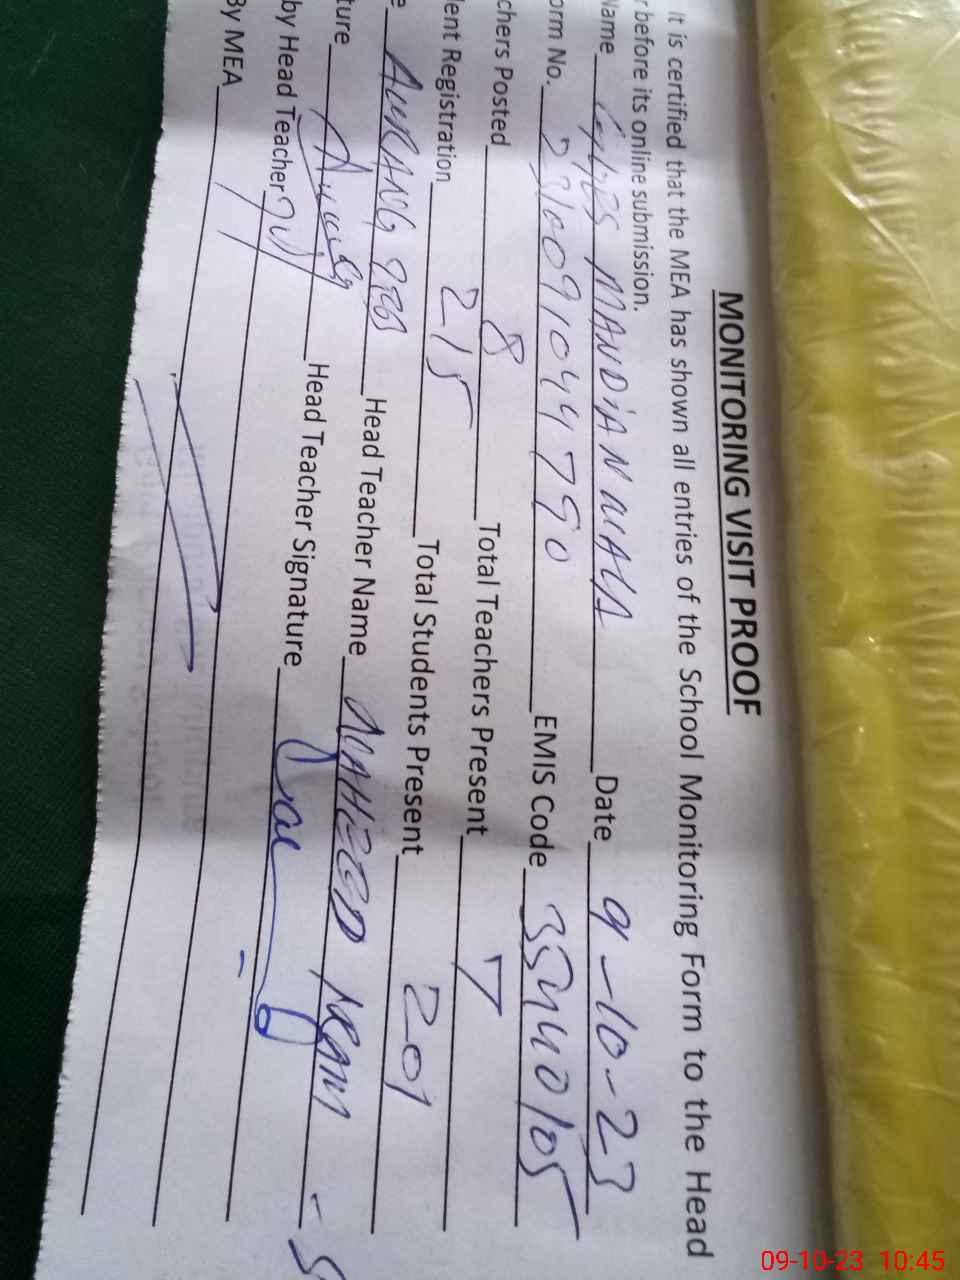 MONITORING VISIT PROOF
It is certified that the MEA has shown all entries of the School Monitoring Form to the Head
r before its online submission.
Name MANDIANWALA Date 9-10-23
orm No. EMIS Code 35440105
chers Posted 8 Total Teachers Present 7
lent Registration 215 Total Students Present 201
e AURANG ZEB Head Teacher Name
ture Head Teacher Signature
by Head Teacher
By MEA
09-10-23 10:45